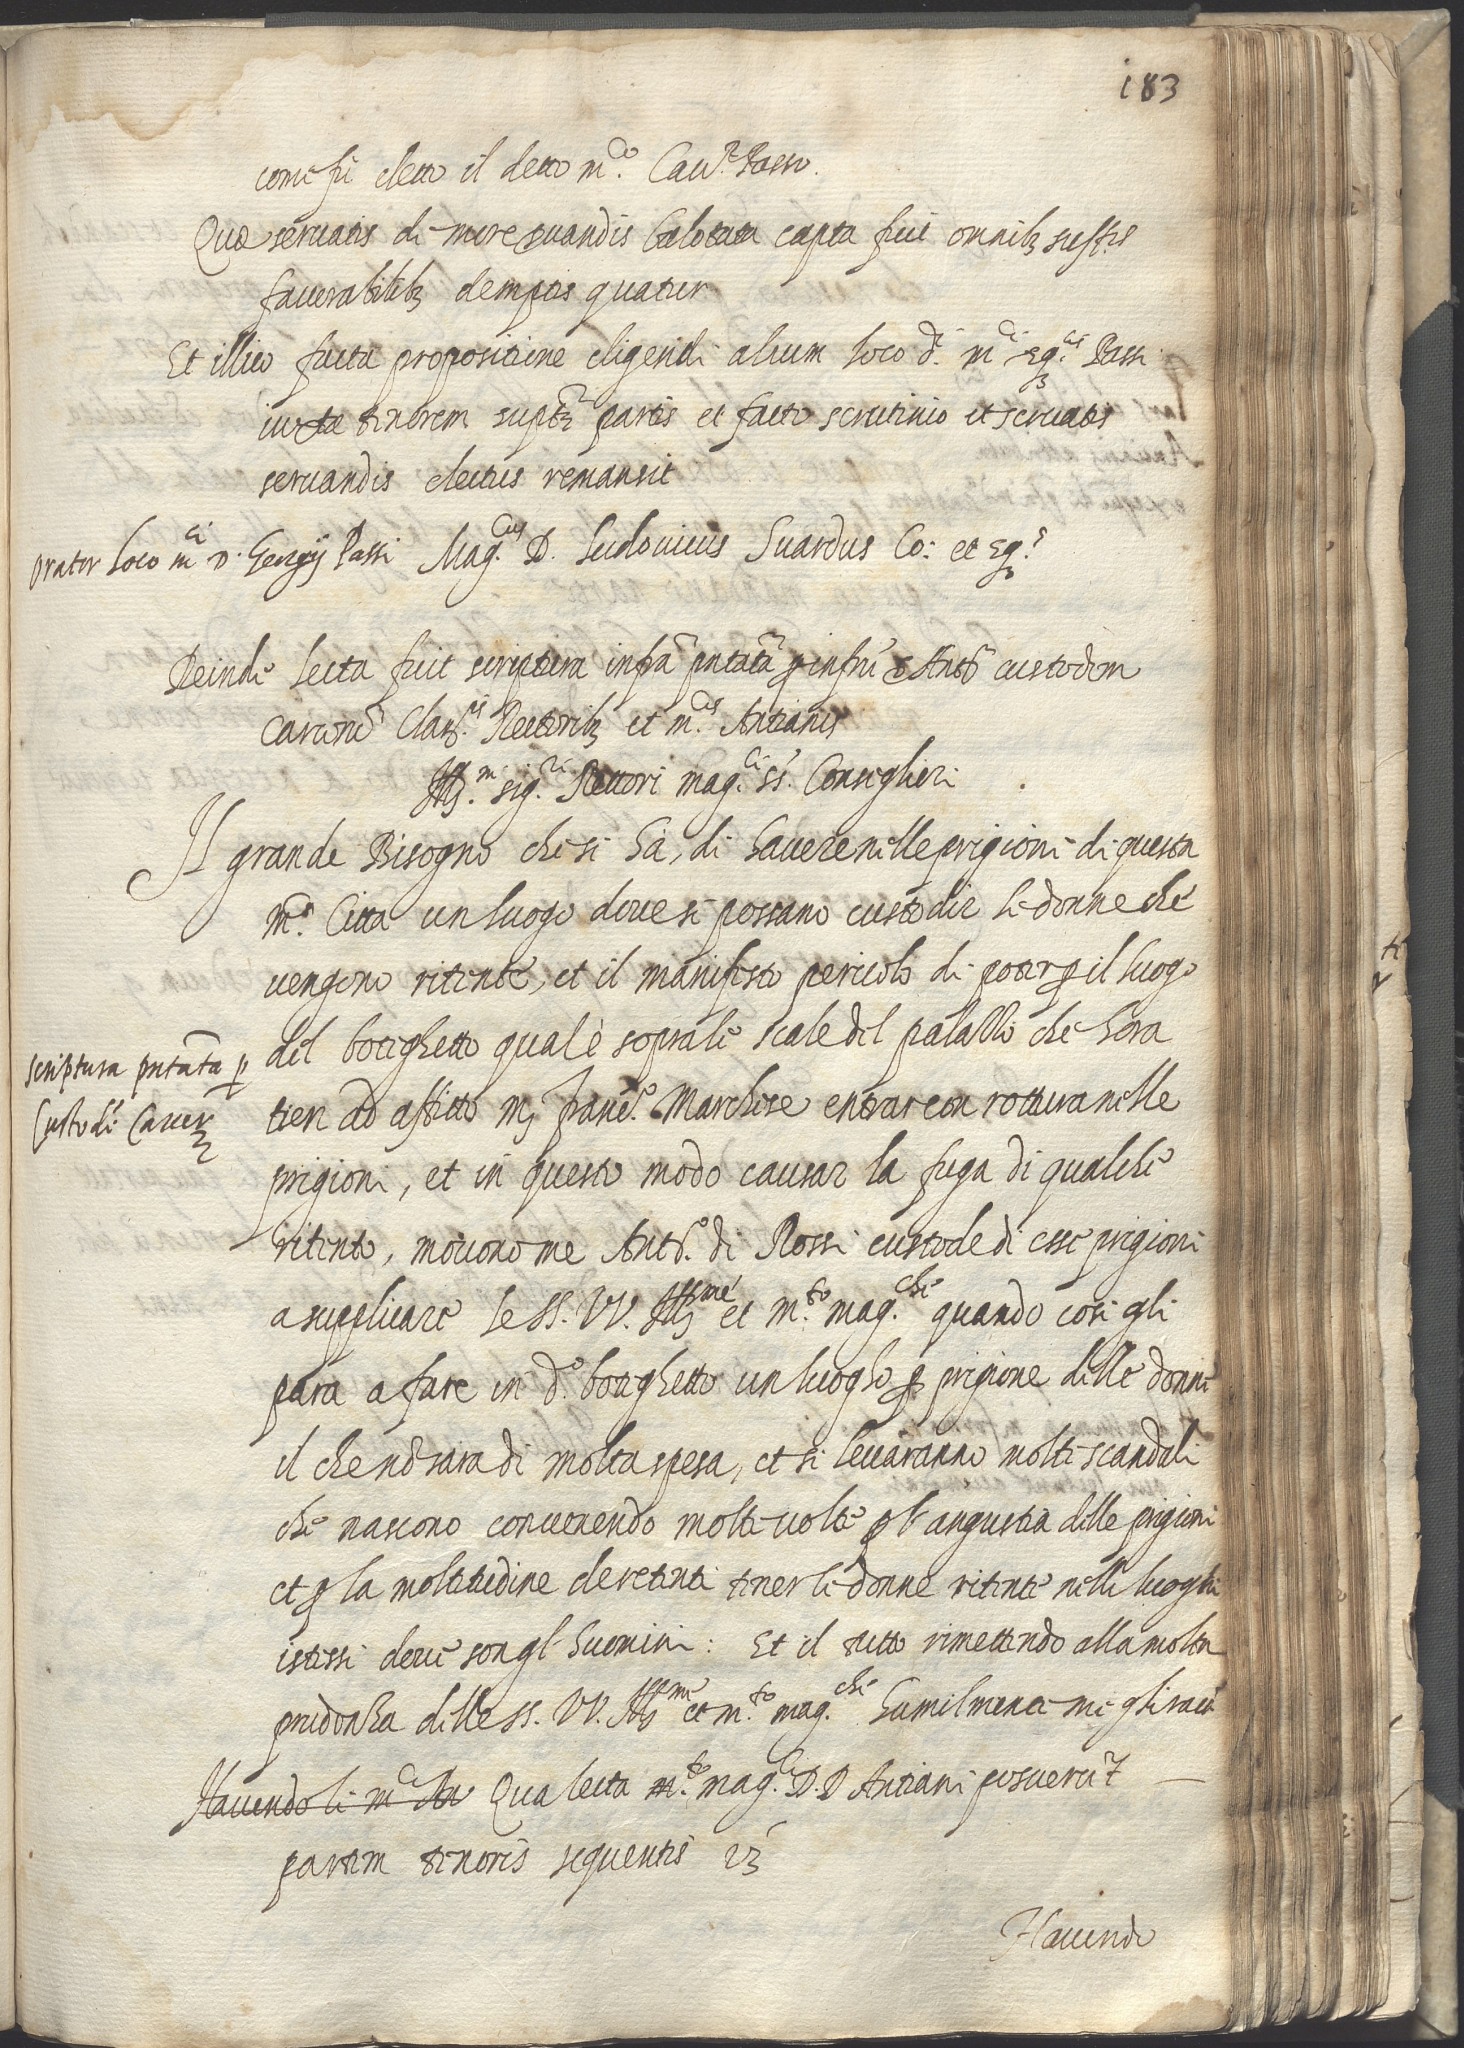 183
come fu eletto il detto m.co Cav.r Passo.
Qua servatis de more servandis balotata capta fuit omnib; suff.is
favorabilib; demptis quatuor
Et illico facta propositione eligendi alium loco d.i m.ci Eq.tis Passi
iuxta tenorem supt.ę partis et facto scrutinio et servatis
servandis electus remansit
orator loco m.ci D. Georgij Passi Mag.cus D. Ludovicus Suardus Co: et Eq.s
Deinde lecta fuit scriptura infra pntata p infru Ant.m custodem
carcerũ Clar.is Rectorib; et m.cis Antianis
Ill.mi sig.ri Rettori mag.ci ss.i Consiglieri
Il grande Bisogno che si ha, di havere nelle prigioni di questa
m.ca Citta un luogo dove si possano custodir le donne che
vengono ritente, et il manifesto pericolo di poter p il luogo
del boteghetto qual è sopra le scale del palazzo che hora
tien ad affitto m; Franc.o Marchese entrar con rottura nelle
scriptura pntata p
Custode Carcer;
prigioni, et in questo modo causar la fuga di qualche
ritento, movono me Ant.o di Rossi custode di esse prigioni
a supplicare le SS. VV. Ill.me et m.to mag.che quando cosi gli
para a fare in d.o boteghetto un luogho p prigione delle donne
il che nõ sara di molta spesa, et si levaranno molti scandali
che nascono convenendo molte volte p l'angustia delle prigioni
et p la moltitudine de retenti tener le donne ritente nelli luoghi
istessi dove son gl' huomini: Et il tutto rimettendo alla molta
prudenza delle ss. VV. Ill.me et m.to mag.che humilmente me gli rac.do
Havendo li m.ci Qua lecta m.to mag.ci D. D Antiani posuerũt
partem tenoris sequentis vz
Havendo